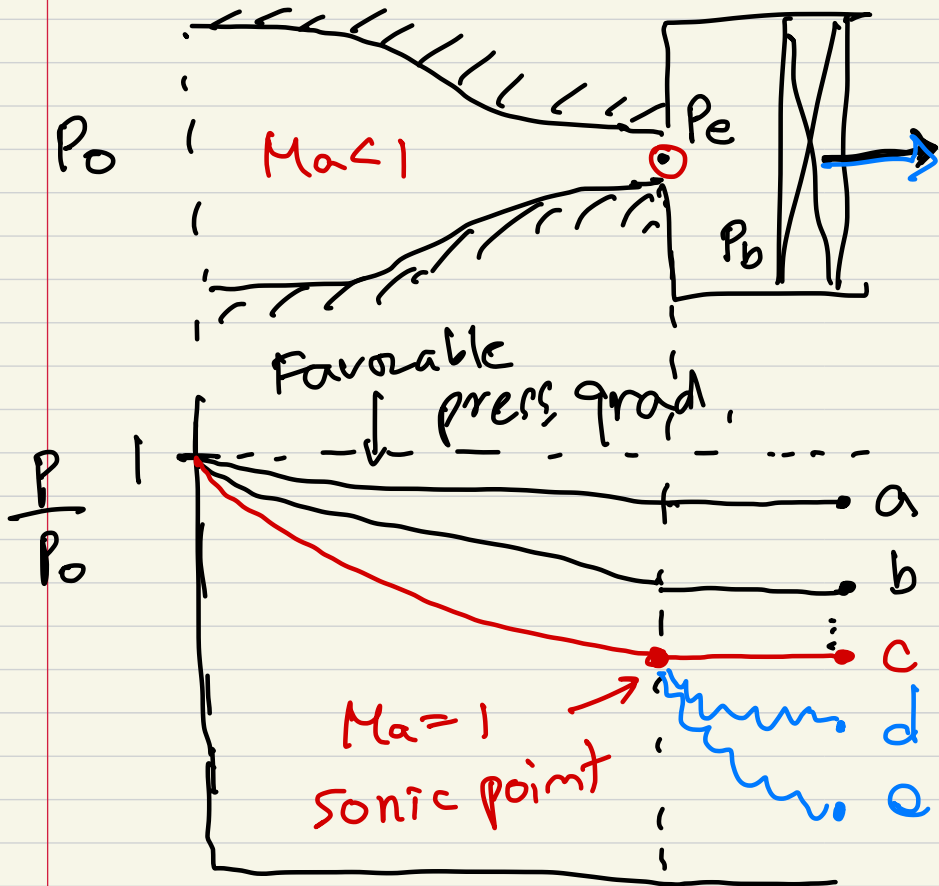 Po
Ma<1
Pe
Pb
Favorable
press, grad.
1
P
Po
a
b
c
Ma=1
sonic point
d
e